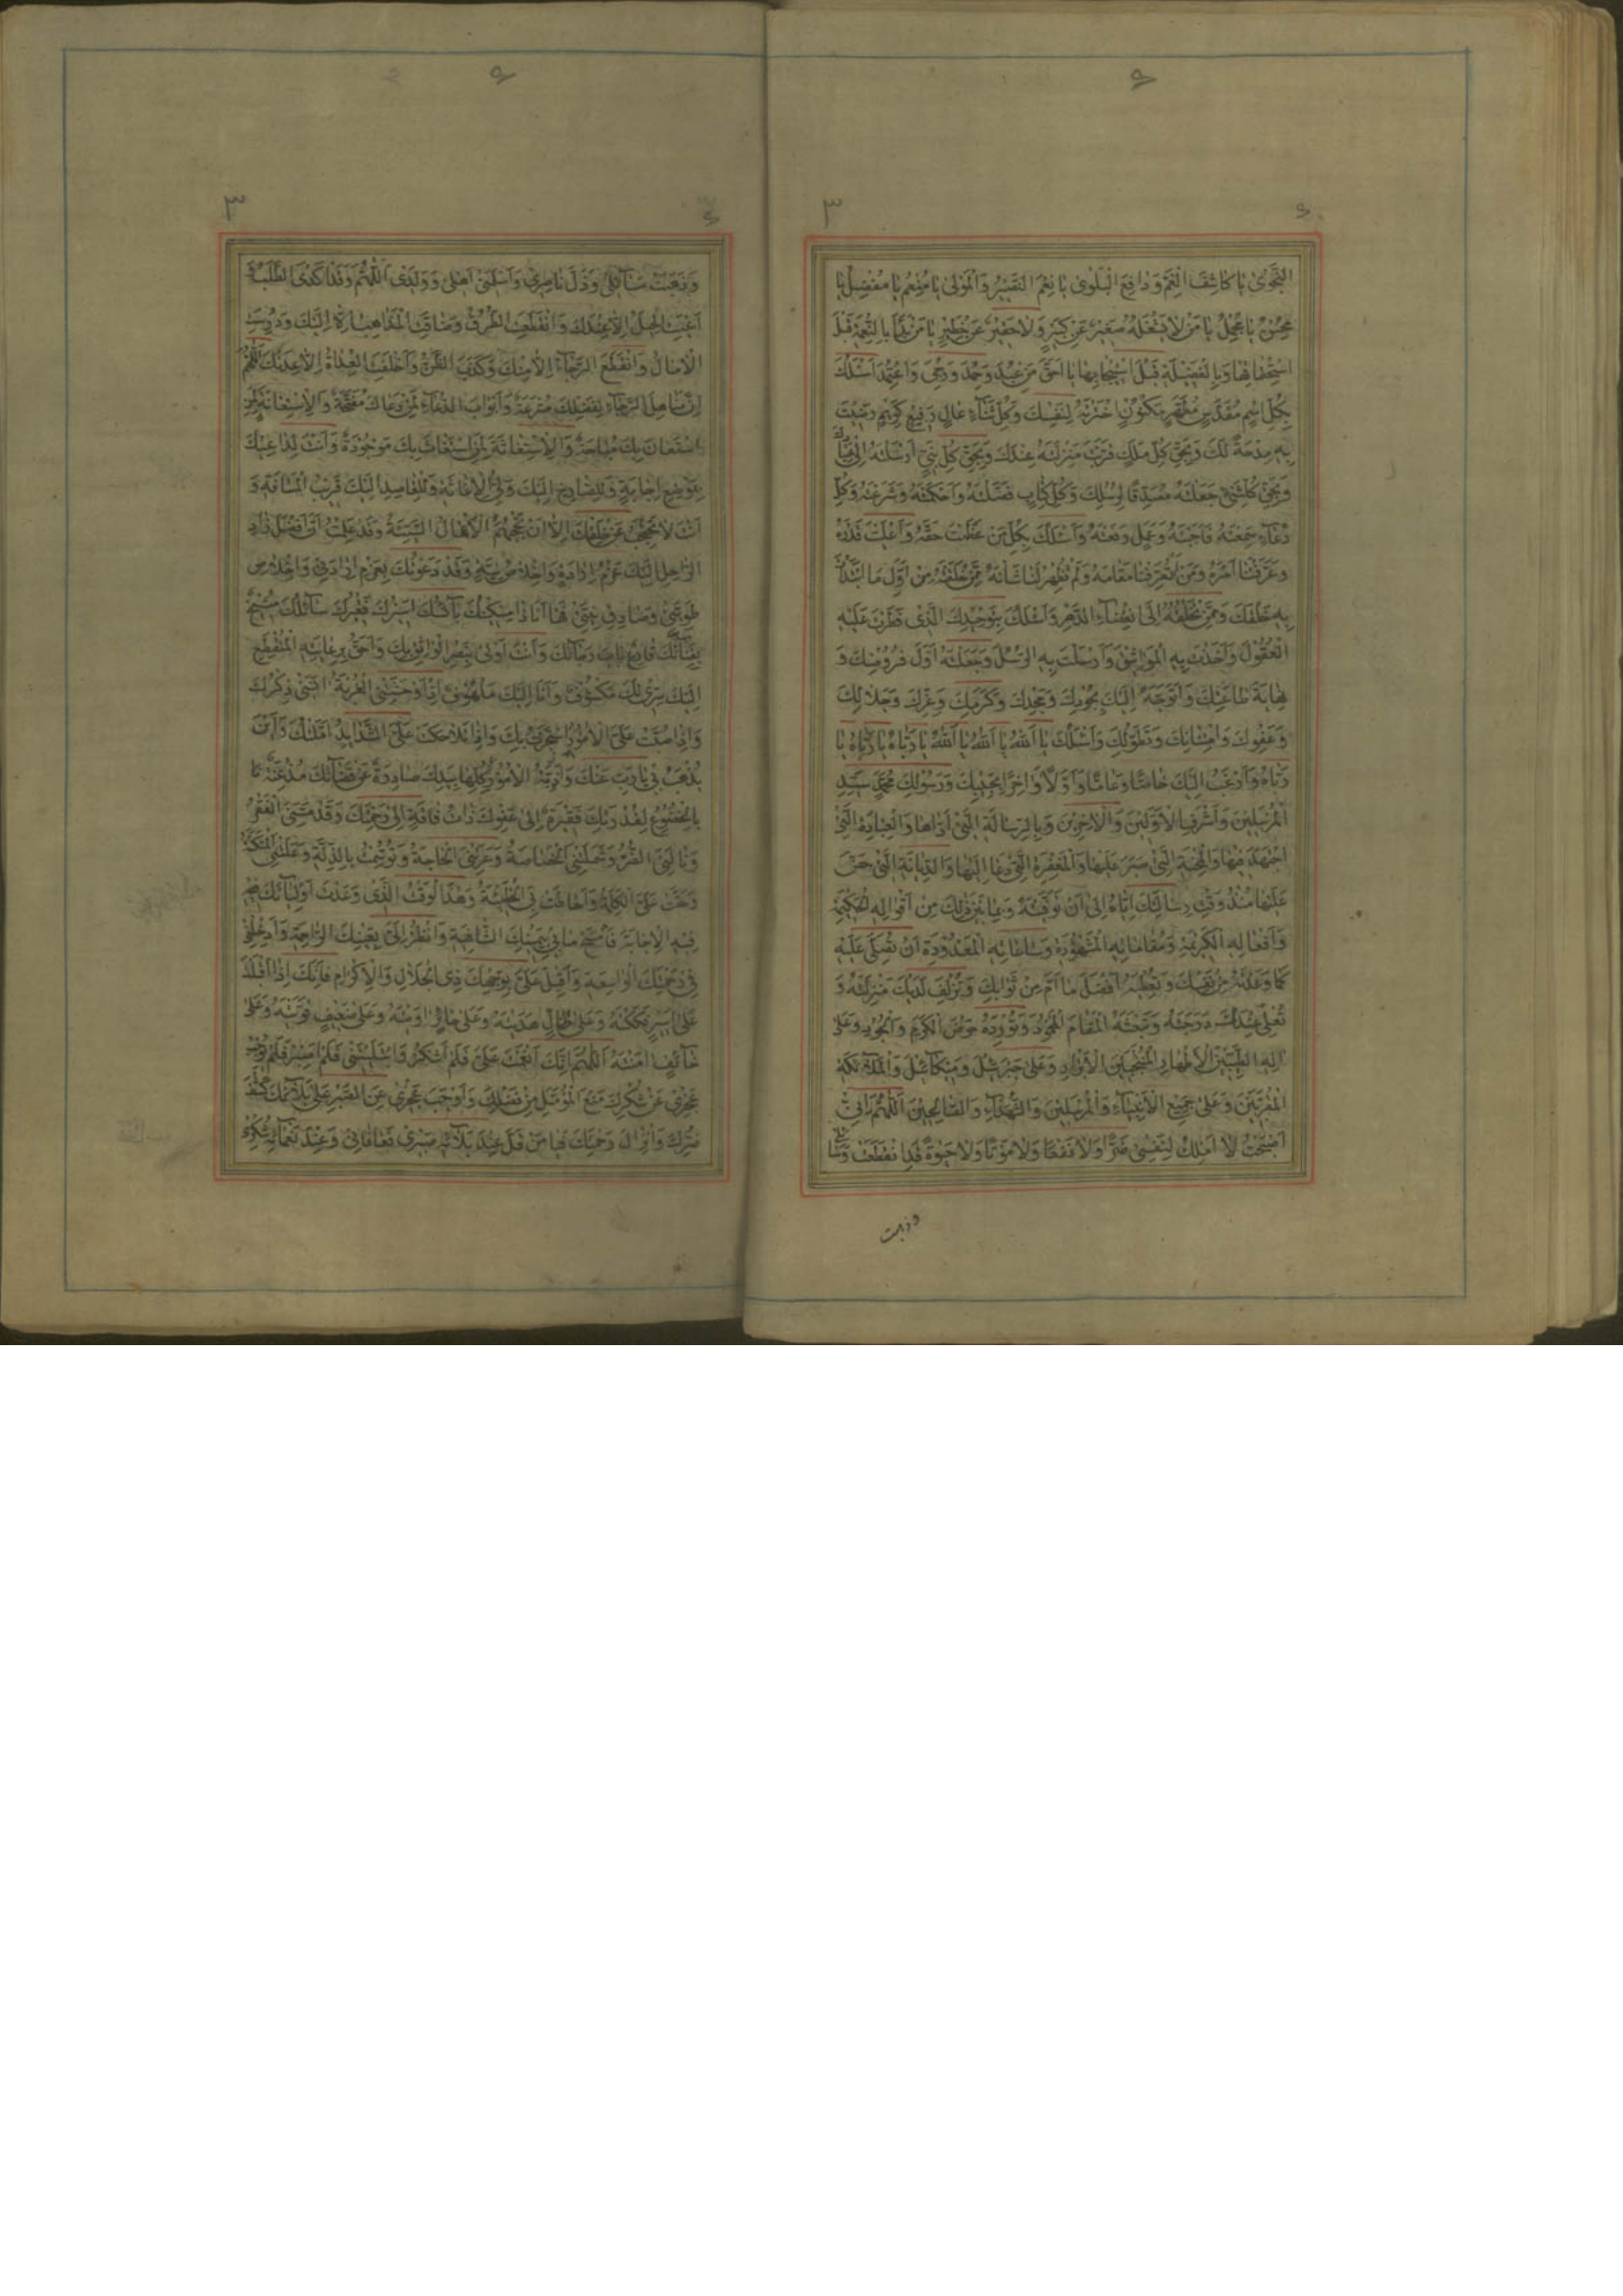 ۶
۳
۶
النَّجْوٰى يٰا كٰاشِفَ الْغَمِّ وَ دٰافِعَ الْبَلْوٰى يٰا نِعْمَ النَّصِيْرُ وَالْمَوْلٰى يٰا مُنْعِمُ يٰا مُفْضِلُ يٰا
مُحْسِنُ يٰا مُجْمِلُ يٰا مَنْ لٰا يَشْغَلُهُ صَغِيْرٌ عَنْ كَبِيْرٍ وَلٰا حَقِيْرٌ عَنْ خَطِيْرٍ يٰا مَنْ بَدَأَ بِالنِّعْمَةِ قَبْلَ
اسْتِحْقٰاقِهٰا وَبِالْفَضِيْلَةِ قَبْلَ اسْتِيْجٰابِهٰا يٰا اَحَقَّ مَنْ عُبِدَ وَحُمِدَ وَرُجِىَ وَاعْتُمِدَ اَسْئَلُكَ
بِكُلِّ اسْمٍ مُقَدَّسٍ مُطَهَّرٍ مَكْنُوْنٍ اخْتَرْتَهُ لِنَفْسِكَ وَكُلِّ ثَنٰاءٍ عٰالٍ رَفِيْعٍ كَرِيْمٍ رَضِيْتَ
بِهِ مِدْحَةً لَكَ وَبِحَقِّ كُلِّ مَلَكٍ قَرُبَتْ مَنْزِلَتُهُ عِنْدَكَ وَبِحَقِّ كُلِّ نَبِىٍّ اَرْسَلْتَهُ اِلٰى عِبٰادِكَ
وَبِحَقِّ كُلِّ شَىْءٍ جَعَلْتَهُ مُصَدِّقًا لِرُسُلِكَ وَكُلِّ كِتٰابٍ فَصَّلْتَهُ وَاَحْكَمْتَهُ وَشَرَعْتَهُ وَكُلِّ
دُعٰاءٍ سَمِعْتَهُ فَاَجَبْتَهُ وَعَمَلٍ رَفَعْتَهُ وَاَسْئَلُكَ بِكُلِّ مَنْ عَظَّمْتَ حَقَّهُ وَاَعْلَيْتَ قَدْرَهُ
وَعَرَّفْتَنٰا اَمْرَهُ وَمَنْ لَمْ تُعَرِّفْنٰا مَقٰامَهُ وَلَمْ تُظْهِرْ لَنٰا شَأْنَهُ مِمَّنْ خَلَقْتَهُ مِنْ اَوَّلِ مَا ابْتَدَأْتَ
بِهِ خَلْقَكَ وَمِمَّنْ تَخْلُقُهُ اِلَى انْقِضٰاءِ الدَّهْرِ وَاَسْئَلُكَ بِتَوْحِيْدِكَ الَّذِى فَطَرْتَ عَلَيْهِ
الْعُقُوْلَ وَاَخَذْتَ بِهِ الْمَوٰاثِيْقَ وَاَرْسَلْتَ بِهِ الرُّسُلَ وَجَعَلْتَهُ اَوَّلَ فُرُوْضِكَ وَ
نِهٰايَةَ طٰاعَتِكَ وَاَتَوَجَّهُ اِلَيْكَ بِجُوْدِكَ وَمَجْدِكَ وَكَرَمِكَ وَعِزِّكَ وَجَلٰالِكَ
وَعَفْوِكَ وَامْتِنٰانِكَ وَتَطَوُّلِكَ وَاَسْئَلُكَ يٰا اَللهُ يٰا اَللهُ يٰا اَللهُ يٰا رَبّٰاهُ يٰا رَبّٰاهُ يٰا
رَبّٰاهُ وَاَرْغَبُ اِلَيْكَ خٰاصًّا وَعٰامًّا وَاَوَّلًا وَاٰخِرًا بِحَبِيْبِكَ وَرَسُوْلِكَ مُحَمَّدٍ سَيِّدِ
الْمُرْسَلِيْنَ وَاَشْرَفِ الْاَوَّلِيْنَ وَالْاٰخِرِيْنَ وَبِالرِّسٰالَةِ الَّتِى اَدّٰاهٰا وَالْعِبٰادَةِ الَّتِى
اجْتَهَدَ فِيْهٰا وَالْمِحْنَةِ الَّتِى صَبَرَ عَلَيْهٰا وَالْمَغْفِرَةِ الَّتِى دَعٰا اِلَيْهٰا وَالدِّيٰانَةِ الَّتِى حَضَّ
عَلَيْهٰا مُنْذُ وَقْتِ رِسٰالَتِكَ اِيّٰاهُ اِلٰى اَنْ تَوَفَّيْتَهُ وَبِمٰا بَيْنَ ذٰلِكَ مِنْ اَقْوٰالِهِ الْحَكِيْمَةِ
وَاَفْعٰالِهِ الْكَرِيْمَةِ وَمَقٰامٰاتِهِ الْمَشْهُوْدَةِ وَسٰاعٰاتِهِ الْمَعْدُوْدَةِ اَنْ تُصَلِّىَ عَلَيْهِ
كَمٰا وَعَدْتَهُ مِنْ نَفْسِكَ وَتُعْطِيَهُ اَفْضَلَ مٰا اَمَّلَ مِنْ ثَوٰابِكَ وَتُزْلِفَ لَدَيْكَ مَنْزِلَتَهُ وَ
تُعْلِىَ عِنْدَكَ دَرَجَتَهُ وَتَبْعَثَهُ الْمَقٰامَ الْمَحْمُوْدَ وَتُوْرِدَهُ حَوْضَ الْكَرَمِ وَالْجُوْدِ وَعَلٰى
اٰلِهِ الطَّيِّبِيْنَ الْاَطْهٰارِ الْمُنْتَجَبِيْنَ الْاَبْرٰارِ وَعَلٰى جَبْرَئِيْلَ وَمِيْكٰائِيْلَ وَالْمَلٰائِكَةِ
الْمُقَرَّبِيْنَ وَعَلٰى جَمِيْعِ الْاَنْبِيٰاءِ وَالْمُرْسَلِيْنَ وَالشُّهَدٰاءِ وَالصّٰالِحِيْنَ اَللّٰهُمَّ اِنِّى
اَصْبَحْتُ لٰا اَمْلِكُ لِنَفْسِى ضَرًّا وَلٰا نَفْعًا وَلٰا مَوْتًا وَلٰا حَيٰوةً قَدِ انْقَطَعَتْ وَسٰائِلِى
وذهبت
۶
۳
۶
وَذَهَبَتْ مَسٰائِلِى وَذَلَّ نٰاصِرِى وَاَسْلَمَنِى اَهْلِى وَوَلَدِى اَللّٰهُمَّ وَقَدْ اَكْدَى الطَّلَبُ وَ
اَعْيَتِ الْحِيَلُ اِلّٰا عِنْدَكَ وَانْقَطَعَتِ الطُّرُقُ وَضٰاقَتِ الْمَذٰاهِبُ اِلّٰا اِلَيْكَ وَدَرَسَتِ
الْاٰمٰالُ وَانْقَطَعَ الرَّجٰاءُ اِلّٰا مِنْكَ وَكَذَبَ الظَّنُّ وَاَخْلَفَتِ الْعِدٰاةُ اِلّٰا عِدَتُكَ اَللّٰهُمَّ
اِنَّ مَنٰاهِلَ الرَّجٰاءِ لِفَضْلِكَ مُتْرَعَةٌ وَاَبْوٰابَ الدُّعٰاءِ لِمَنْ دَعٰاكَ مُفَتَّحَةٌ وَالْاِسْتِعٰانَةَ لِمَنِ
اسْتَعٰانَ بِكَ مُبٰاحَةٌ وَالْاِسْتِغٰاثَةَ لِمَنِ اسْتَغٰاثَ بِكَ مَوْجُوْدَةٌ وَاَنْتَ لِدٰاعِيْكَ
بِمَوْضِعِ اِجٰابَةٍ وَلِلصّٰارِخِ اِلَيْكَ وَلِىُّ الْاِغٰاثَةِ وَالْقٰاصِدَ اِلَيْكَ قَرِيْبُ الْمَسٰافَةِ وَ
اَنْتَ لٰا تَحْتَجِبُ عَنْ خَلْقِكَ اِلّٰا اَنْ تَحْجُبَهُمُ الْاَعْمٰالُ السَّيِّئَةُ وَقَدْ عَلِمْتُ اَنَّ اَفْضَلَ زٰادِ
الرّٰاحِلِ اِلَيْكَ عَزْمُ اِرٰادَةٍ وَاِخْلٰاصُ نِيَّةٍ وَقَدْ دَعَوْتُكَ بِعَزْمِ اِرٰادَتِى وَاِخْلٰاصِ
طَوِيَّتِى وَصٰادِقِ نِيَّتِى فَهٰا اَنَا ذٰا مِسْكِيْنُكَ بٰائِسُكَ اَسِيْرُكَ فَقِيْرُكَ سٰائِلُكَ مُنِيْخٌ
بِفِنٰائِكَ قٰارِعٌ بٰابَ رَجٰائِكَ وَاَنْتَ اَوْلٰى بِنَصْرِ الْوٰاثِقِ بِكَ وَاَحَقُّ بِرِعٰايَةِ الْمُنْقَطِعِ
اِلَيْكَ سِرِّى لَكَ مَكْشُوْفٌ وَاَنَا اِلَيْكَ مَلْهُوْفٌ اِذٰا اَوْحَشَتْنِى الْغُرْبَةُ اٰنَسَنِى ذِكْرُكَ
وَاِذٰا صُبَّتْ عَلَىَّ الْاُمُوْرُ اسْتَجَرْتُ بِكَ وَاِذٰا تَلٰاحَكَتْ عَلَىَّ الشَّدٰائِدُ اَمَّلْتُكَ وَاَيْنَ
يُذْهَبُ بِى يٰا رَبِّ عَنْكَ وَاَزِمَّةُ الْاُمُوْرِ كُلِّهٰا بِيَدِكَ صٰادِرَةٌ عَنْ قَضٰائِكَ مُذْعِنَةٌ
بِالْخُضُوْعِ لِقُدْرَتِكَ فَقِيْرَةٌ اِلٰى عَفْوِكَ ذٰاتُ فٰاقَةٍ اِلٰى رَحْمَتِكَ وَقَدْ مَسَّنِى الْفَقْرُ
وَنٰالَنِى الضُّرُّ وَشَمَلَتْنِى الْخَصٰاصَةُ وَعَرَتْنِى الْحٰاجَةُ وَتَوَسَّمْتُ بِالذِّلَّةِ وَعَلَتْنِى الْمَسْكَنَةُ
وَحَقَّتْ عَلَىَّ الْكَلِمَةُ وَاَحٰاطَتْ بِىَ الْخَطِيْئَةُ وَهٰذَا الْوَقْتُ الَّذِى وَعَدْتَ اَوْلِيٰائَكَ
فِيْهِ الْاِجٰابَةَ فَامْسَحْ مٰا بِى بِيَمِيْنِكَ الشّٰافِيَةِ وَانْظُرْ اِلَىَّ بِعَيْنِكَ الرّٰاحِمَةِ وَاَدْخِلْنِى
فِى رَحْمَتِكَ الْوٰاسِعَةِ وَاَقْبِلْ عَلَىَّ بِوَجْهِكَ ذِى الْجَلٰالِ وَالْاِكْرٰامِ فَاِنَّكَ اِذٰا اَقْبَلْتَ
عَلٰى اَسِيْرٍ فَكَكْتَهُ وَعَلٰى ضٰالٍّ هَدَيْتَهُ وَعَلٰى حٰائِرٍ اٰوَيْتَهُ وَعَلٰى ضَعِيْفٍ قَوَّيْتَهُ وَعَلٰى
خٰائِفٍ اٰمَنْتَهُ اَللّٰهُمَّ اِنَّكَ اَنْعَمْتَ عَلَىَّ فَلَمْ اَشْكُرْ وَابْتَلَيْتَنِى فَلَمْ اَصْبِرْ فَلَمْ يُوْجِبْ
عَجْزِى عَنْ شُكْرِكَ مَنْعَ الْمُؤَمَّلِ مِنْ فَضْلِكَ وَاَوْجَبَ عَجْزِى عَنِ الصَّبْرِ عَلٰى بَلٰائِكَ كَشْفَ
ضُرِّكَ وَاِنْزٰالَ رَحْمَتِكَ فَيٰا مَنْ قَلَّ عِنْدَ بَلٰائِهِ صَبْرِى فَعٰافٰانِى وَعِنْدَ نَعْمٰائِهِ شُكْرِى